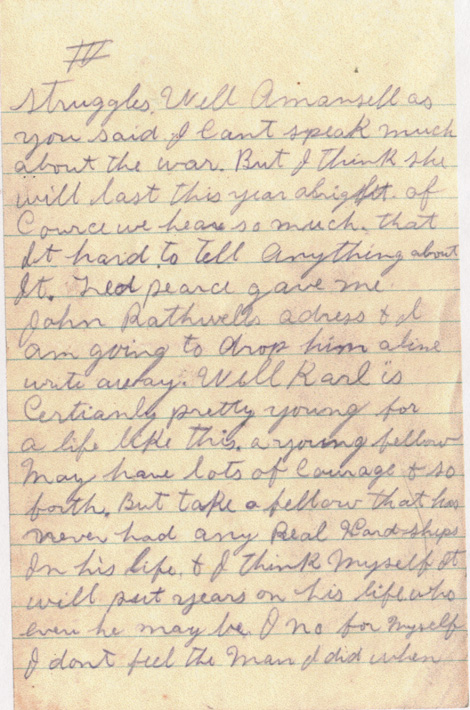 IV
struggles. Well Amansell as
you said I Cant speak much
about the war. But I think she
will last this year alright. of
Cource we hear so much. that
It hard to tell Anything about
It. Ned pearce gave me
John Rathwells adress & I
am going to drop him a line
write away. Well Karl is
Certianly pretty young for
a life like this. a young fellow
May have lots of Courage & so
forth. But take a fellow that has
never had any Real Hard-ships
In his life. & I think Myself It
will put years on his life who
ever he may be. I no for Myself
I dont feel the Man I did when